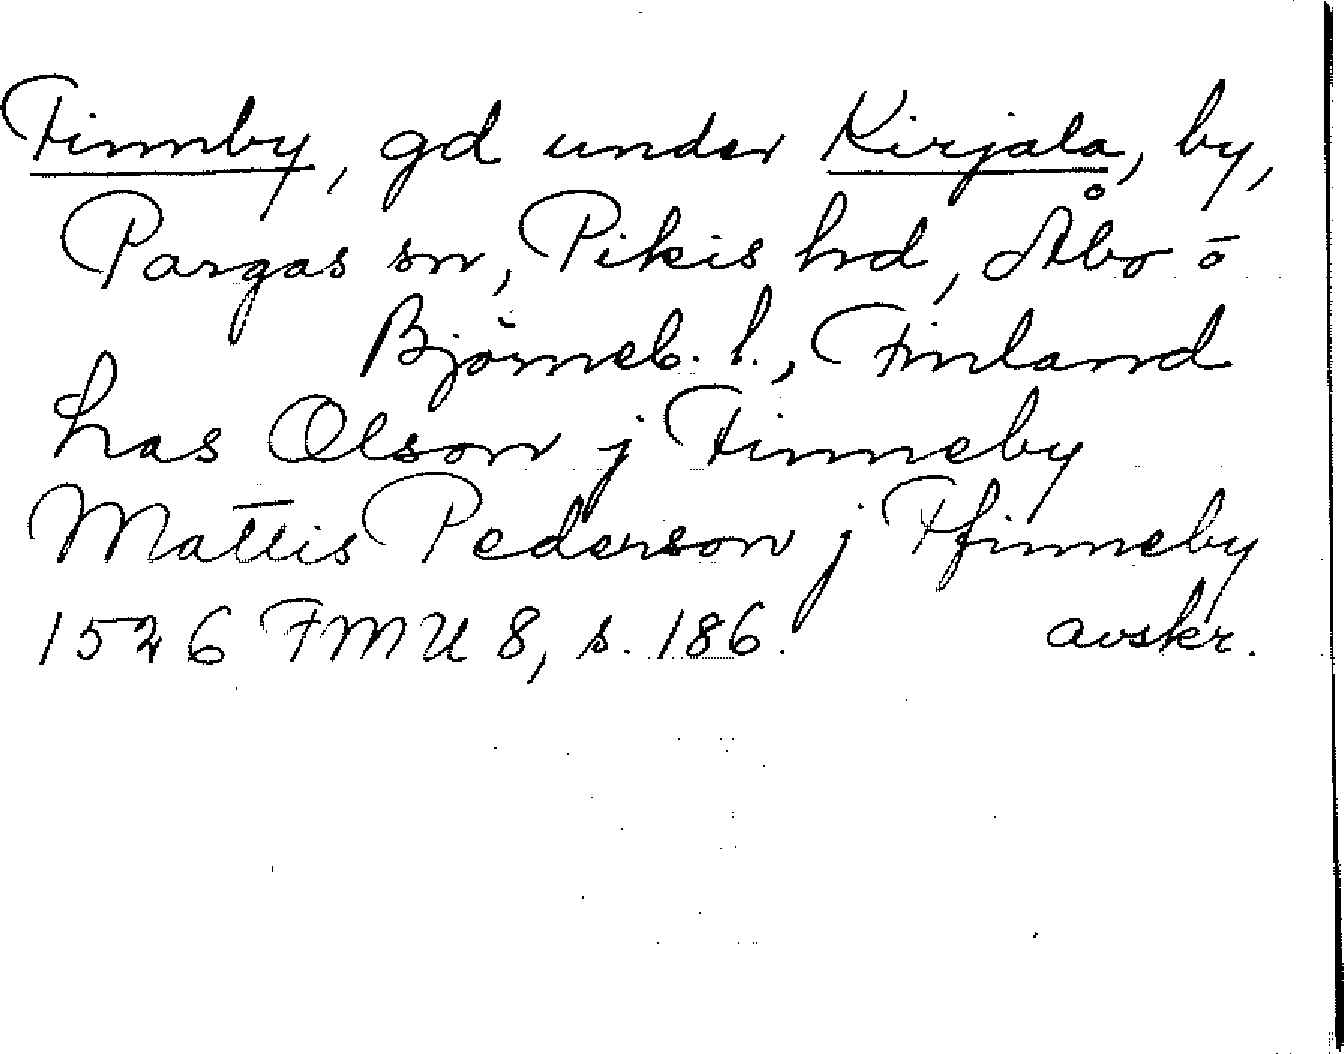 Finnby, gd under Kirjala, by,
Pargas sn, Pikis hd, Åbo o
Björneb. l., Finland
Las Olson j Finneby
Mattis Pederson j Ffinneby
1526 FMU 8, s. 186. avskr.